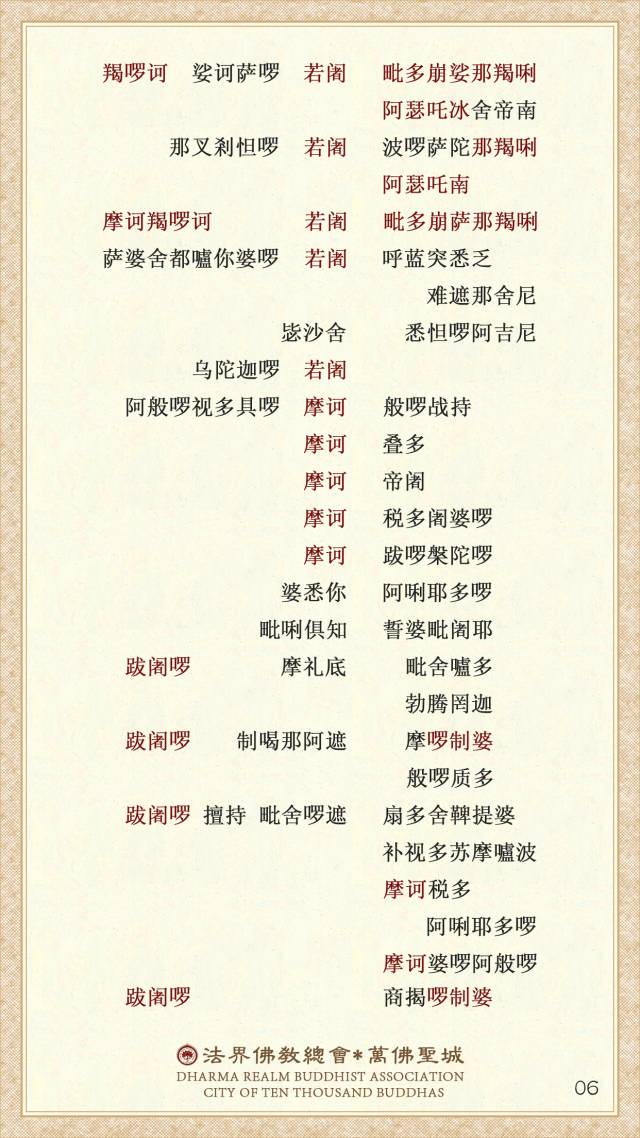 羯啰诃 娑诃萨啰 若阇 毗多崩娑那羯唎
阿瑟吒冰舍帝南
那叉剎怛啰 若阇 波啰萨陀那羯唎
阿瑟吒南
摩诃羯啰诃 若阇 毗多崩萨那羯唎
萨婆舍都嚧你婆啰 若阇 呼蓝突悉乏
难遮那舍尼
毖沙舍 悉怛啰阿吉尼
乌陀迦啰 若阇
阿般啰视多具啰 摩诃 般啰战持
摩诃 叠多
摩诃 帝阇
摩诃 税多阇婆啰
摩诃 跋啰槃陀啰
婆悉你 阿唎耶多啰
毗唎俱知 誓婆毗阇耶
跋阇啰 摩礼底 毗舍嚧多
勃腾罔迦
跋阇啰 制喝那阿遮 摩啰制婆
般啰质多
跋阇啰 擅持 毗舍啰遮 扇多舍鞞提婆
补视多苏摩嚧波
摩诃税多
阿唎耶多啰
摩诃婆啰阿般啰
跋阇啰 商揭啰制婆
法界佛教總會*萬佛聖城
DHARMA REALM BUDDHIST ASSOCIATION
CITY OF TEN THOUSAND BUDDHAS
06